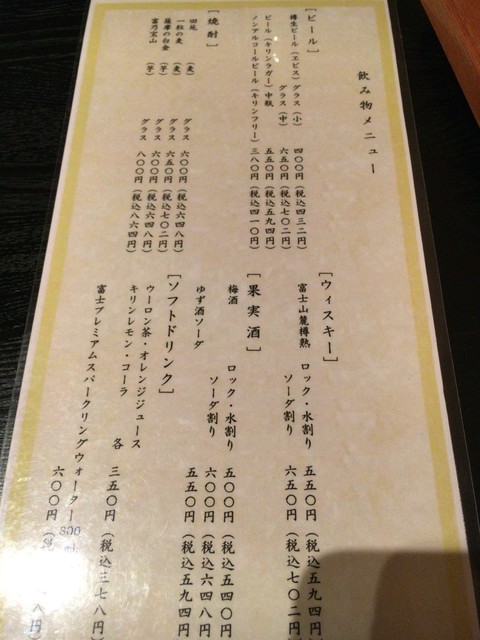 飲み物メニュー
[ビール]
樽生ビール(ヱビス) グラス(小) 四〇〇円(税込四三二円)
グラス(中) 六五〇円(税込七〇二円)
ビール(キリンラガー)中瓶 五五〇円(税込五九四円)
ノンアルコールビール(キリンフリー) 三八〇円(税込四一〇円)
[焼酎]
(麦) グラス 六〇〇円(税込六四八円)
一粒の麦 (麦) グラス 六五〇円(税込七〇二円)
薩摩の白金 (芋) グラス 六〇〇円(税込六四八円)
富乃宝山 (芋) グラス 八〇〇円(税込八六四円)
[ウィスキー]
富士山麓樽熟 ロック・水割り 五五〇円(税込五九四円
ソーダ割り 六五〇円(税込七〇二円
[果実酒]
梅酒 ロック・水割り 五〇〇円(税込五四〇円
ソーダ割り 六〇〇円(税込六四八円
ゆず酒ソーダ 五五〇円(税込五九四円
[ソフトドリンク]
ウーロン茶・オレンジジュース
キリンレモン・コーラ 各 三五〇円(税込三七八円)
富士プレミアムスパークリングウォーター800
六〇〇円(税 八円